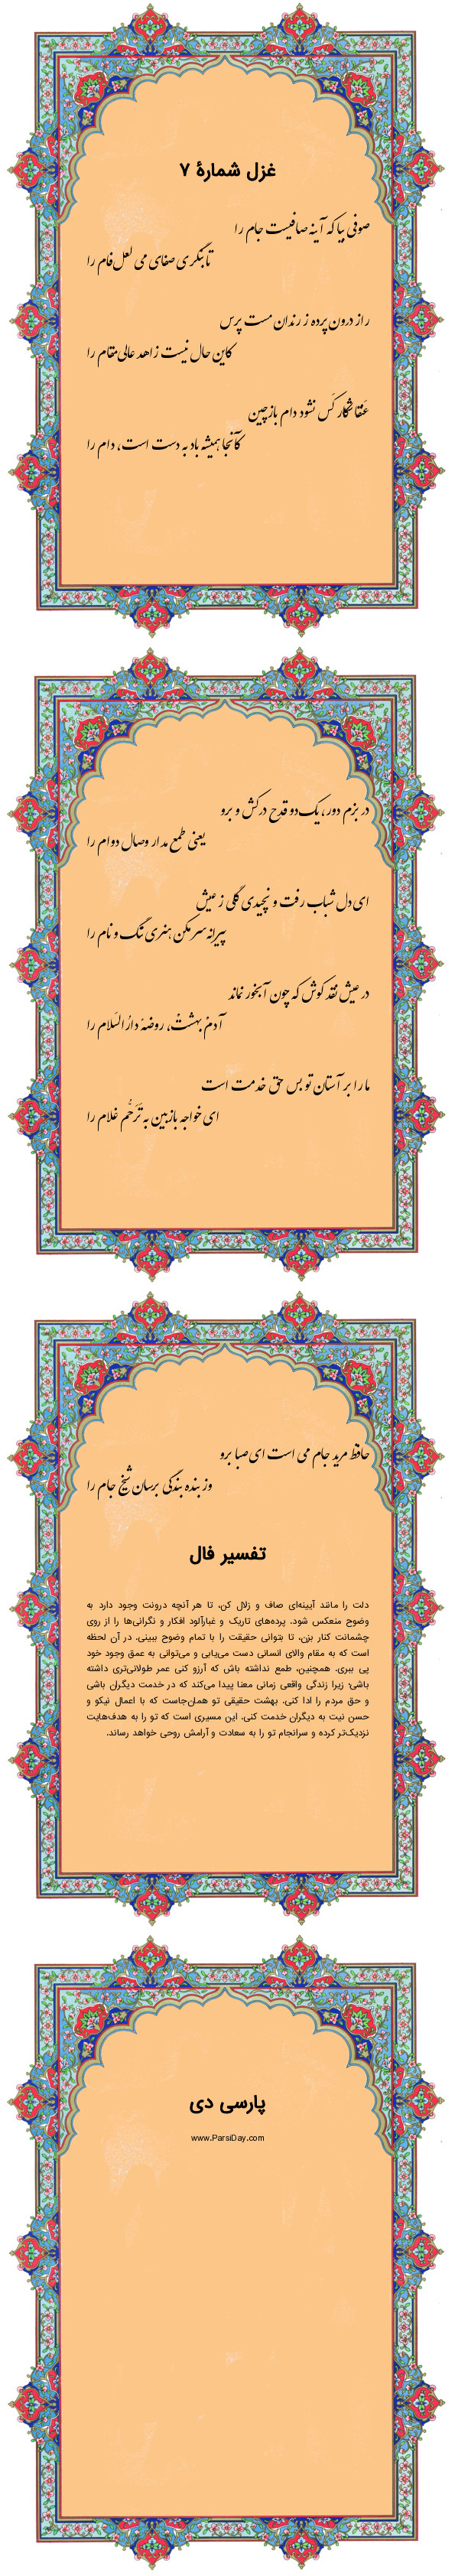 غزل شمارهٔ ۷
صوفی بیا که آینه صافیست جام را
تا بنگری صفای می لعل‌فام را
راز درون پرده ز رندان مست پرس
کاین حال نیست زاهد عالی‌مقام را
عَنقا شکار کَس نشود دام بازچین
کآنجا همیشه باد به دست است، دام را
در بزم دور، یک دو قدح درکش و برو
یعنی طمع مدار وصال دوام را
ای دل شباب رفت و نچیدی گلی ز عیش
پیرانه‌سر مکن هنری ننگ و نام را
در عیش نقد کوش که چون آبخور نماند
آدمْ بهشتْ، روضهٔ دارُالسَلام را
ما را بر آستان تو بس حق خدمت است
ای خواجه بازبین به تَرَحُّم غلام را
حافظ مرید جام می است ای صبا برو
وز بنده بندگی برسان شیخ جام را
تفسیر فال
دلت را مانند آیینه‌ای صاف و زلال کن، تا هر آنچه درونت وجود دارد به
وضوح منعکس شود. پرده‌های تاریک و غبارآلود افکار و نگرانی‌ها را از روی
چشمانت کنار بزن، تا بتوانی حقیقت را با تمام وضوح ببینی. در آن لحظه
است که به مقام والای انسانی دست می‌یابی و می‌توانی به عمق وجود خود
پی ببری. همچنین، طمع نداشته باش که آرزو کنی عمر طولانی‌تری داشته
باشی؛ زیرا زندگی واقعی زمانی معنا پیدا می‌کند که در خدمت دیگران باشی
و حق مردم را ادا کنی. بهشت حقیقی تو همان‌جاست که با اعمال نیکو و
حسن نیت به دیگران خدمت کنی. این مسیری است که تو را به هدف‌هایت
نزدیک‌تر کرده و سرانجام تو را به سعادت و آرامش روحی خواهد رساند.
پارسی دی
www.ParsiDay.com